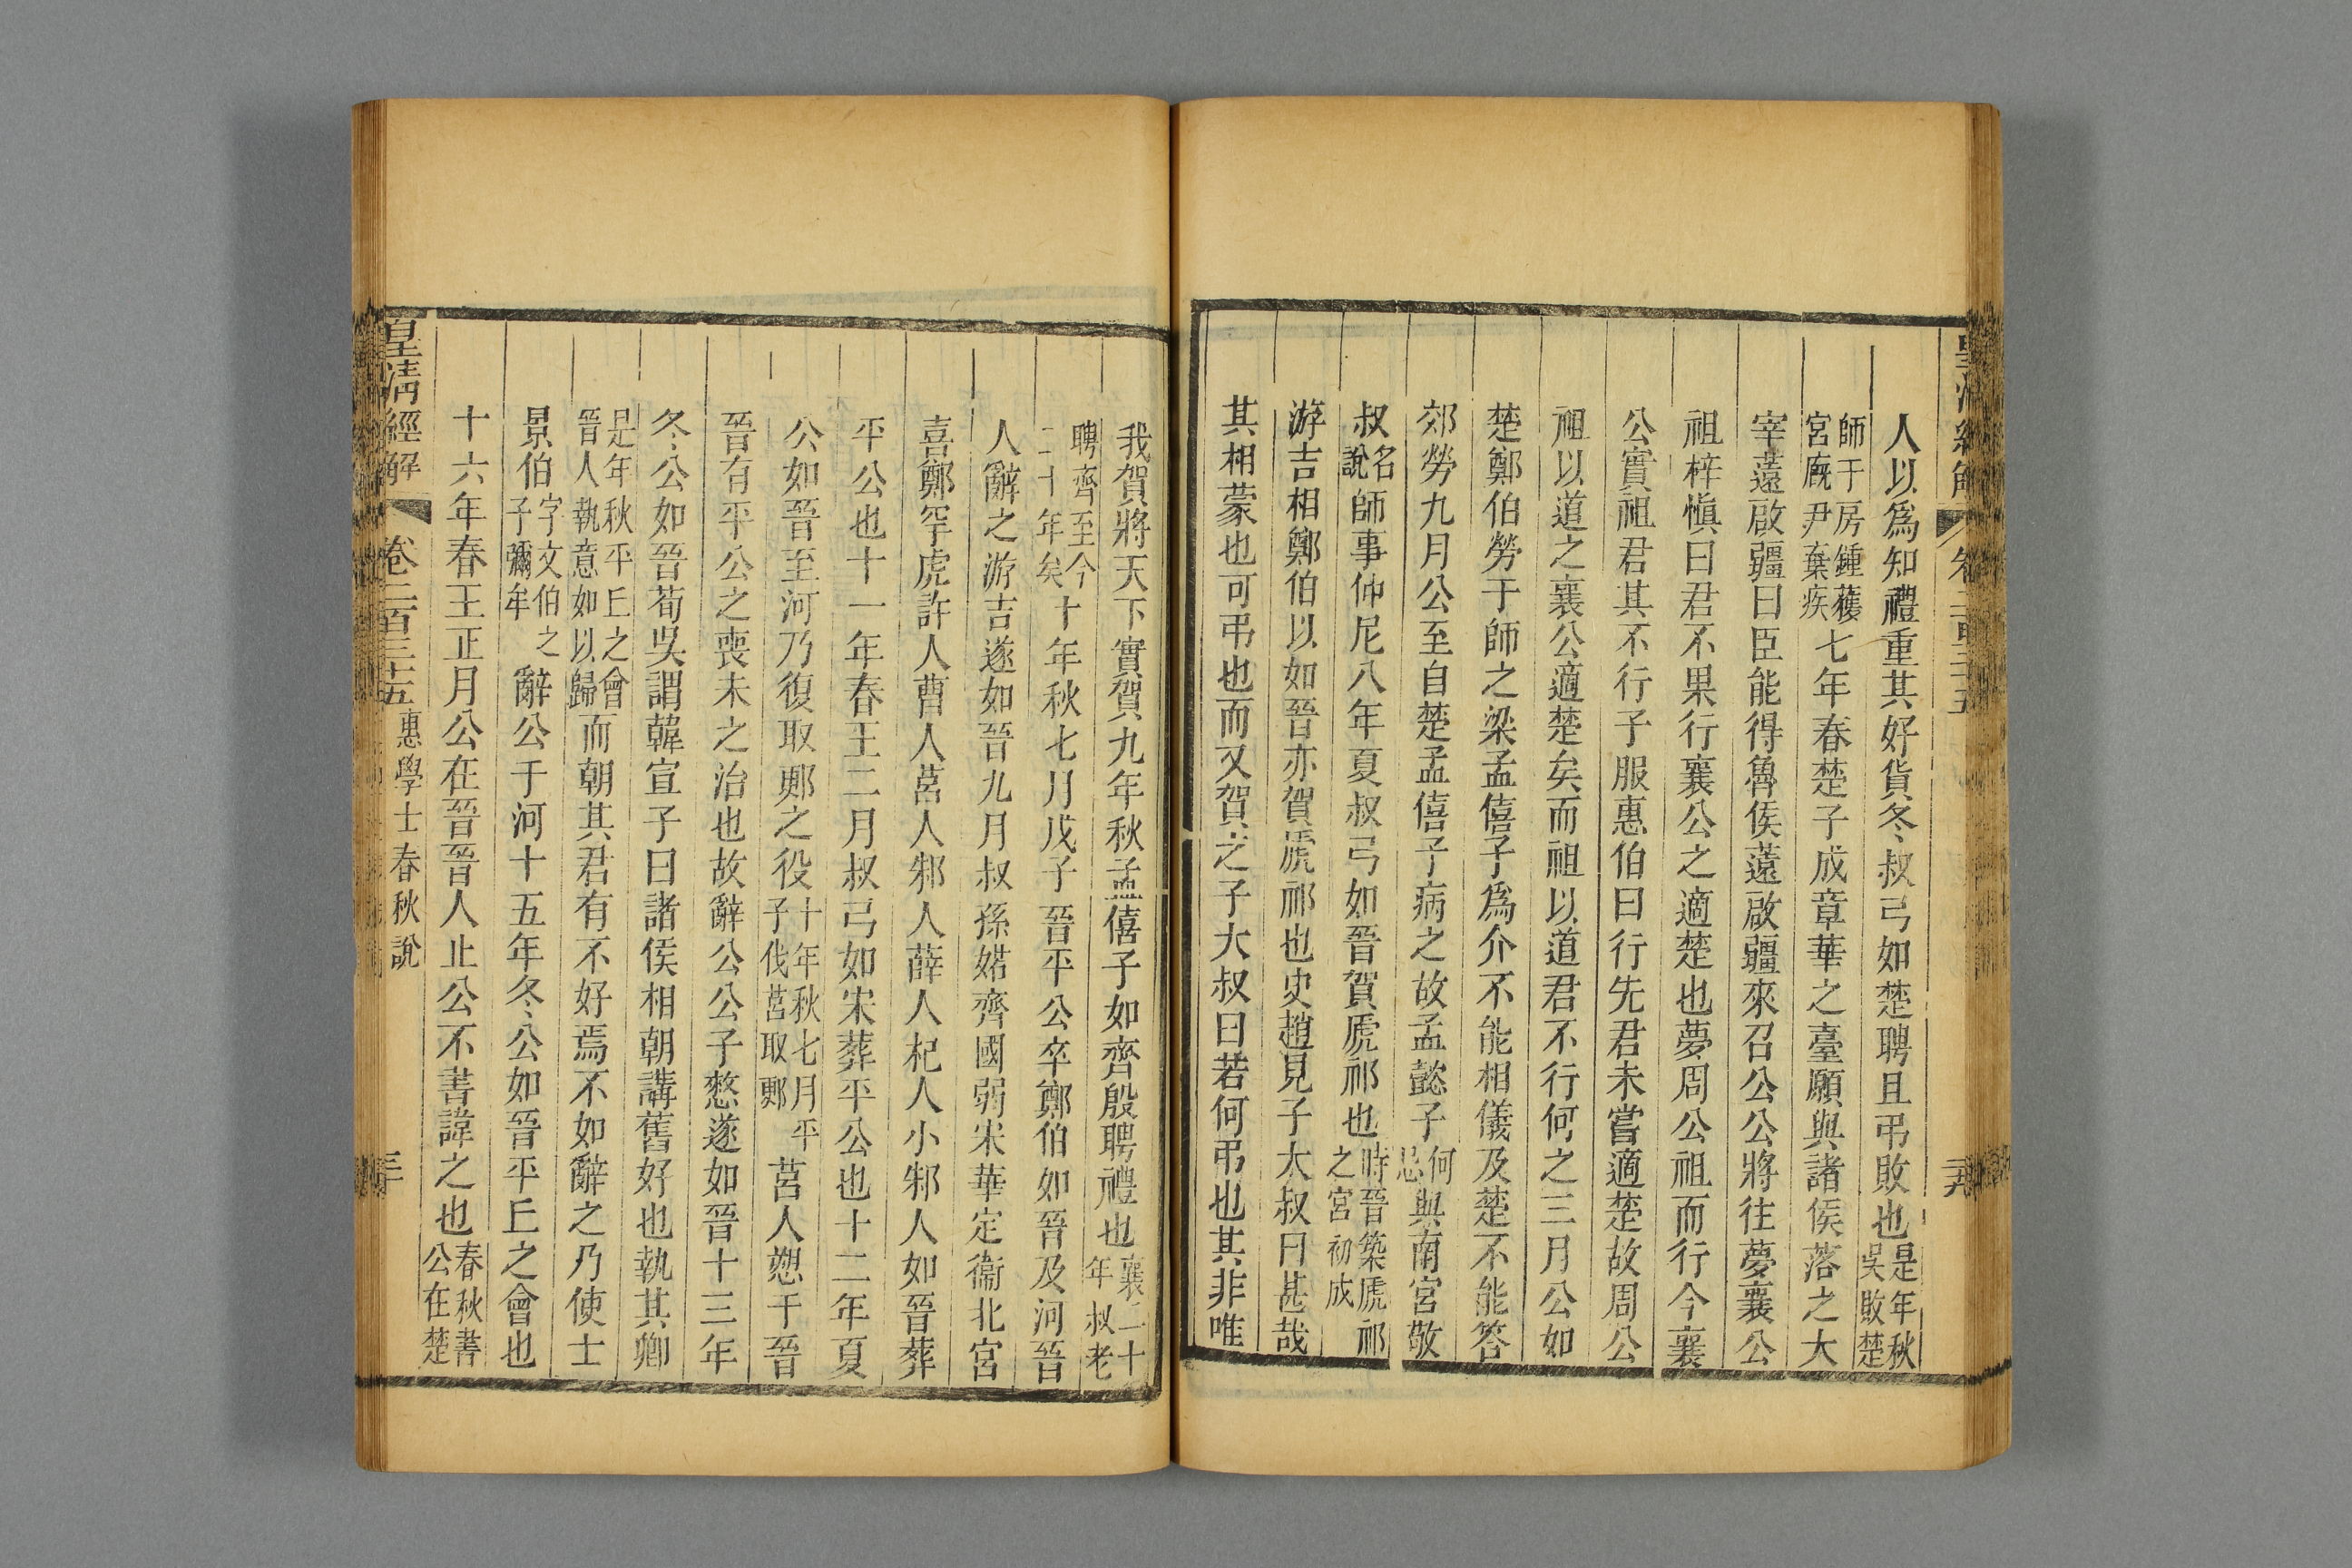 皇清經解 卷二百三十五 三九
人以爲知禮重其好貨冬叔弓如楚聘且弔敗也是年秋吳敗楚
師于房鍾獲宮廐尹棄疾七年春楚子成章華之臺願與諸侯落之大
宰薳啟疆曰臣能得魯侯薳啟疆來召公公將往夢襄公
祖梓愼曰君不果行襄公之適楚也夢周公祖而行今襄
公實祖君其不行子服惠伯曰行先君未嘗適楚故周公
祖以道之襄公適楚矣而祖以道君不行何之三月公如
楚鄭伯勞于師之梁孟僖子爲介不能相儀及楚不能答
郊勞九月公至自楚孟僖子病之故孟懿子何忌與南宮敬
叔名說師事仲尼八年夏叔弓如晉賀虒祁也時晉築虒祁之宮初成
游吉相鄭伯以如晉亦賀虒祁也史趙見子太叔曰甚哉
其相蒙也可弔也而又賀之子大叔曰若何弔也其非唯
我賀將天下實賀九年秋孟僖子如齊殷聘禮也襄二十年叔老
聘齊至今二十年矣十年秋七月戊子晉平公卒鄭伯如晉及河晉
人辭之游吉遂如晉九月叔孫婼齊國弱宋華定衞北宮
喜鄭罕虎許人曹人莒人邾人薛人杞人小邾人如晉葬
平公也十一年春王二月叔弓如宋葬平公也十二年夏
公如晉至河乃復取郠之役十年秋七月平子伐莒取郠莒人愬于晉
晉有平公之喪未之治也故辭公公子憖遂如晉十三年
冬公如晉荀吳謂韓宣子曰諸侯相朝講舊好也執其卿
是年秋平丘之會晉人執意如以歸而朝其君有不好焉不如辭之乃使士
景伯字文伯之子彌牟辭公于河十五年冬公如晉平丘之會也
十六年春王正月公在晉晉人止公不書諱之也春秋書公在楚
皇清經解 卷二百三十五 惠學士春秋說 三